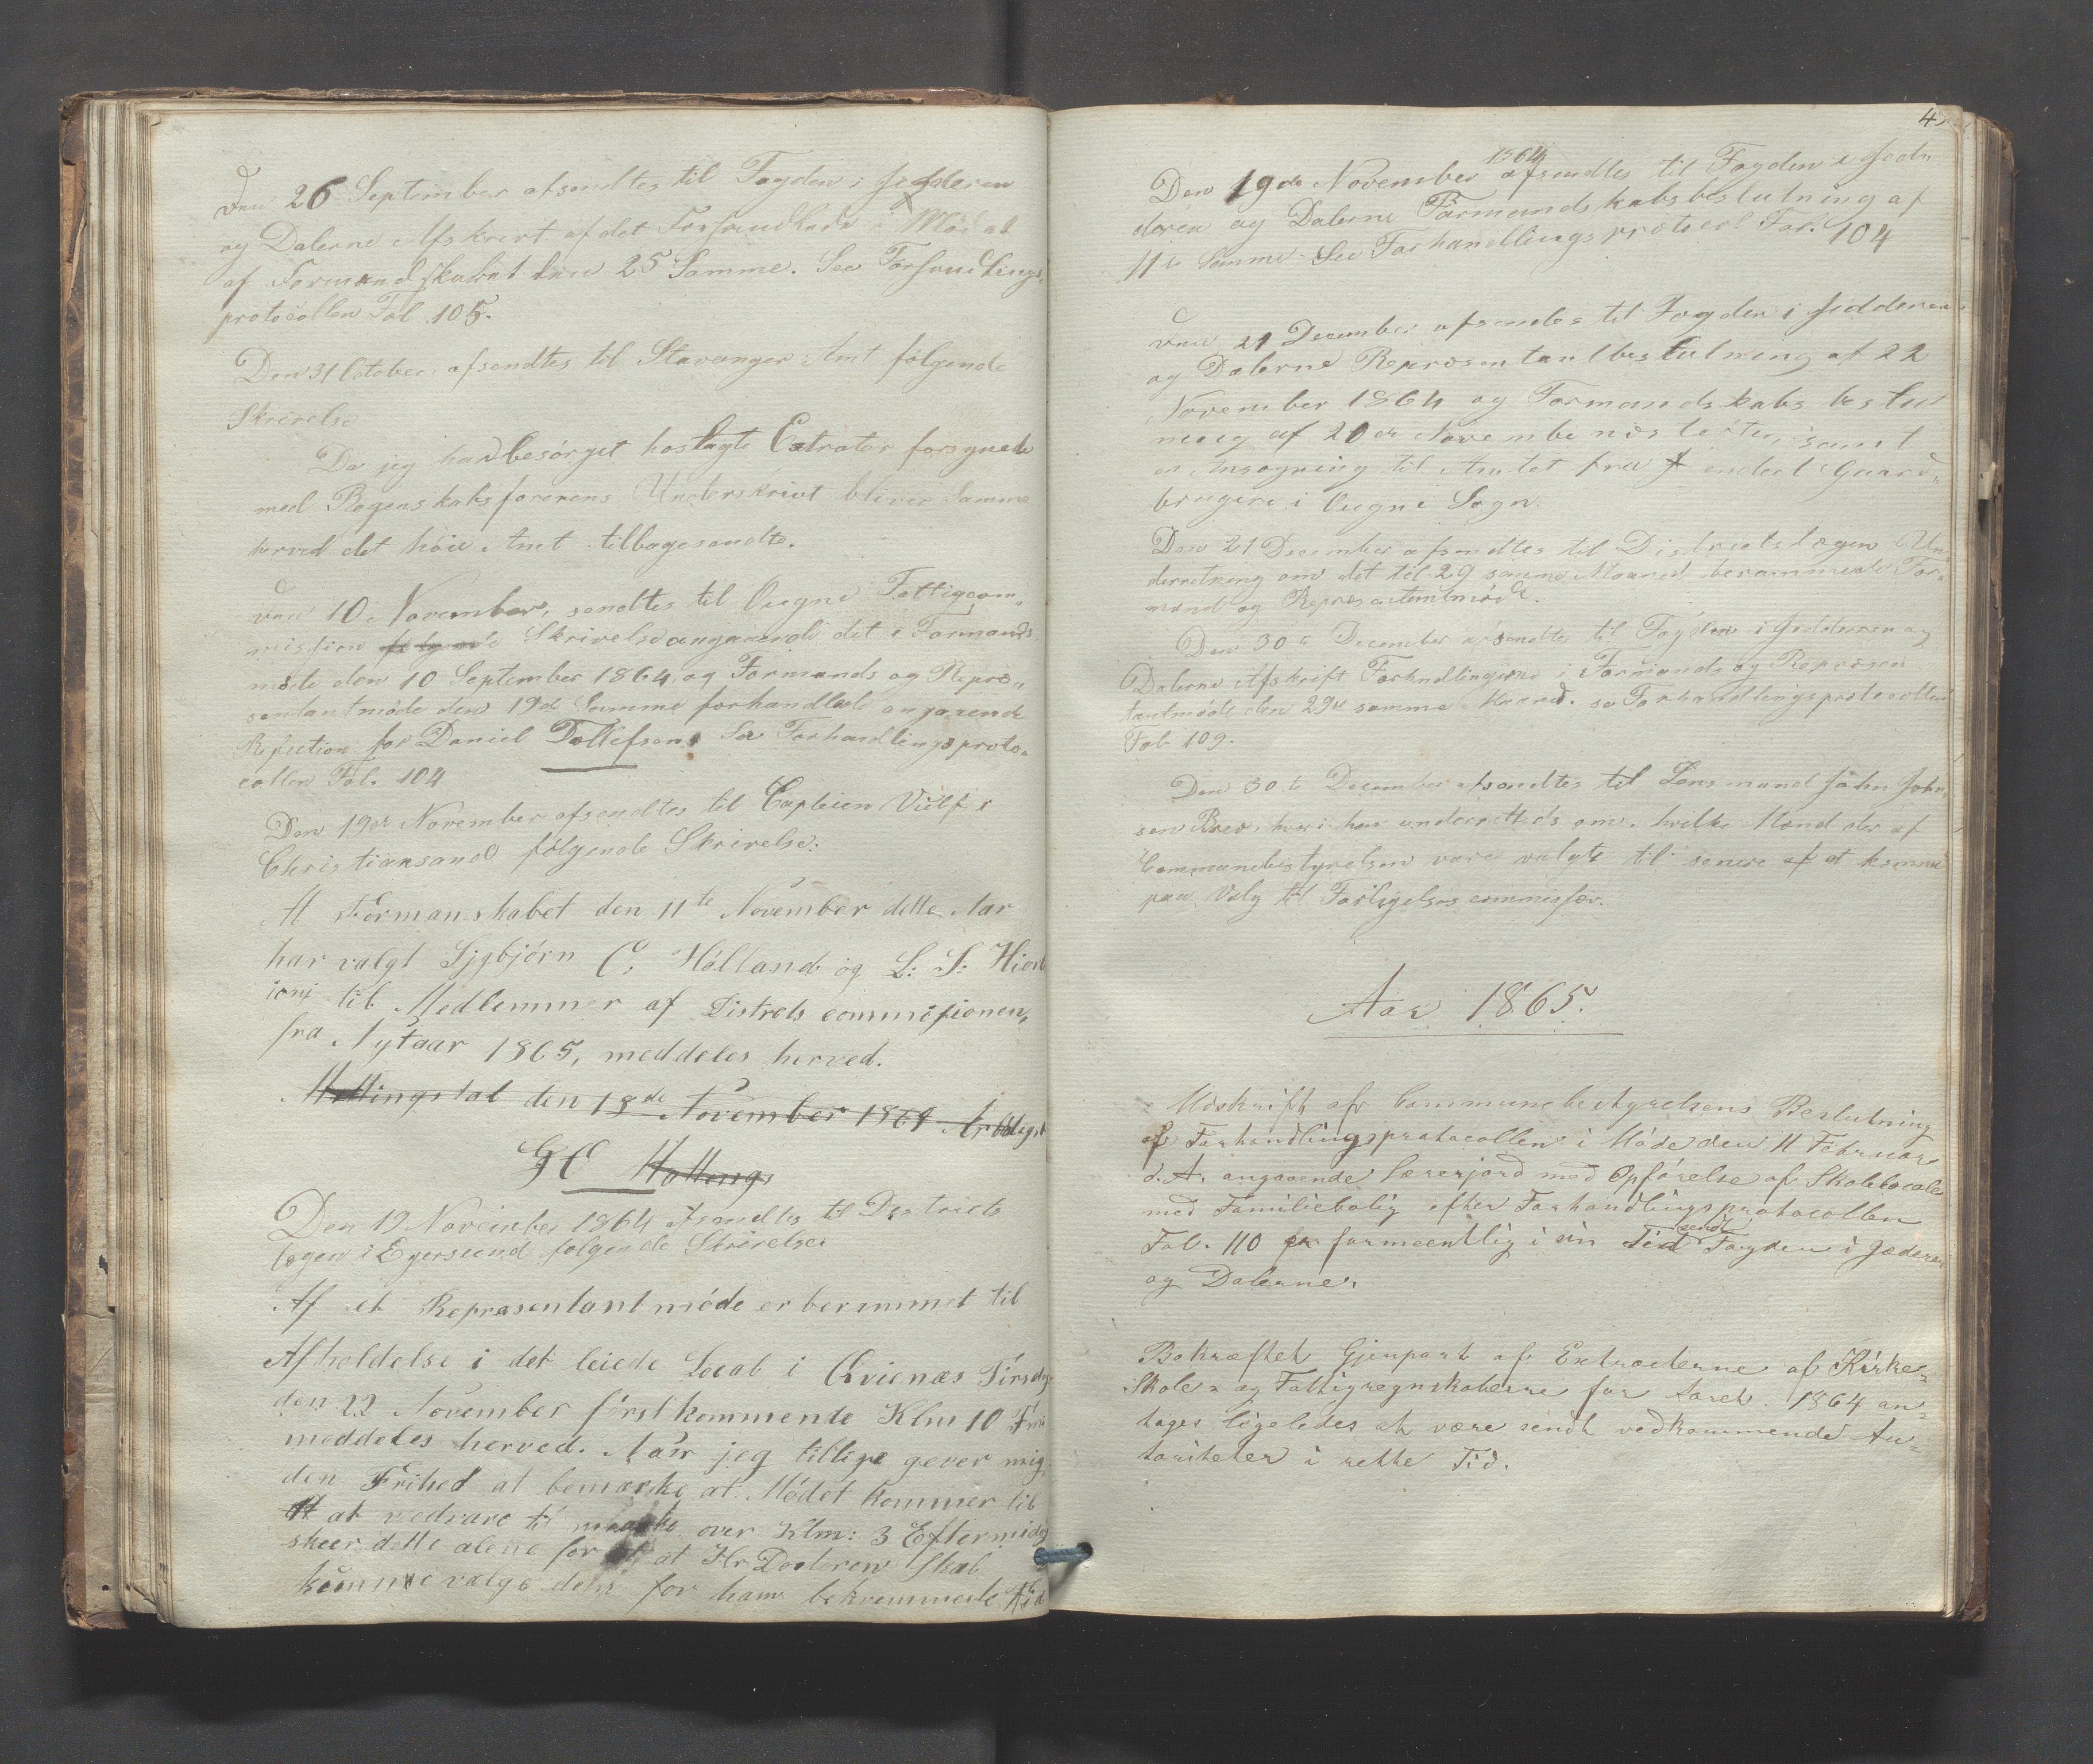 Den 26 September afsendtes til Fogden i Jedderen
og Dalerne Afskrivt af det Forhandlede i Möd al
af Formandskabet den 25 Samme. See Forhandlings,
protocollen Fol. 105.
Den 31 October afsendtes til Stavanger Amt følgende
Skrivelse
Da jeg har besörget hoslagte Extrater forsynede
med Regenskabsførerens Underskrivt bliver Samme
herved det höie Amt tilbagesendte.
Den 10 November, sendtes til Ougne Fattigcom„
mission følgende Skrivelse angaaende det i Formands
møde den 10 September 1864, og Formands og Repræ„
sentantmöde den 19d Samme forhandlede angaaende
Refuction for Daniel Tollefsen. See Forhandlingsproto„
collen Fol. 104
Den 19de November afsendtes til Capteien Vulf i
Christiansand følgende Skrivelse:
At Formanskabet den 11te November dette Aar
har valgt Sigbjörn C. Hölland og L: S: Hiort
til Medlemmer af Distrets commisionen,
fra Nytaar 1865, meddeles herved.
den 18de November 1864 Ærbödigst
G C
Den 19 November 1864 afsendtes til Districts
lægen i Egersund folgende Skrivelse.
Af et Repræsentantmöde er berammet til
Afholdelse i det leiede Local i Qvienæs Tirsdag
den 22 November förstkommente Klm 10 Fm
meddeles herved. Naar jeg tillige gever mig
den Frihed at bemærke at Mödet kommer til
at vedvare til over Klm: 3 Eftermidg
skeer dette alene for at Hr Doctoren skal
kunne vælge den for ham bekvemmeste Tid
4
1864
Den 19de November afsendtes til Fogden i Jed„
deren og Dalerne Formandskabsbeslutning af
11te Samme. See Forhandlingsprotocol Fol. 104
Den 21 December afsendes til Fogden i Jedderen
og Dalerne Repræsentantbeslutning af 22
November 1864 og Formandskabs beslut
ning af 20de November næstefter, samt
en Ansøgning til Amtet fra endeel Gaard„
brugere i Ougne Sogn.
Den 21 December afsendtes til Districtslægen Un„
derretning om det til 29 samme Maaned berammede For„
mand og Repræsentantmöde.
Den 30te December afsendte til Fogden i Jedderen og
Dalerne Afskrift Forhandlingerne i Formands og Repræsen
tantmöde den 29de samme Maaned. se Forhandlingsprotocollen
Fol. 109.
Den 30te December afsendtes til Lensmand John John„
sen Brev, hvori han underretteds om, hvilke Mænd der af
Communebestyrelsen vare valgte til senere at komme
paa Valg til Forligelsescommisær.
Aar 1865.
Udskrift af Communebestyrelsens Beslutning
af Forhandlingsprotocollen i Möde den 11 Februar
d. A. angaaende Lærerjord med Opförelse af Skolelocale
med Familiebolig efter Forhandlingsprotocollen
Fol. 110 formeentlig i sin Tid sendt Fogden i Jæderen
og Dalerne.
Bekræftet Gjenpart af Extracterne af Kirke„
Skole„ og Fattigregnskaberne for Aaret 1864 an„
tages ligeledes at være sendt vedkommende Au„
toriteter i rette Tid.